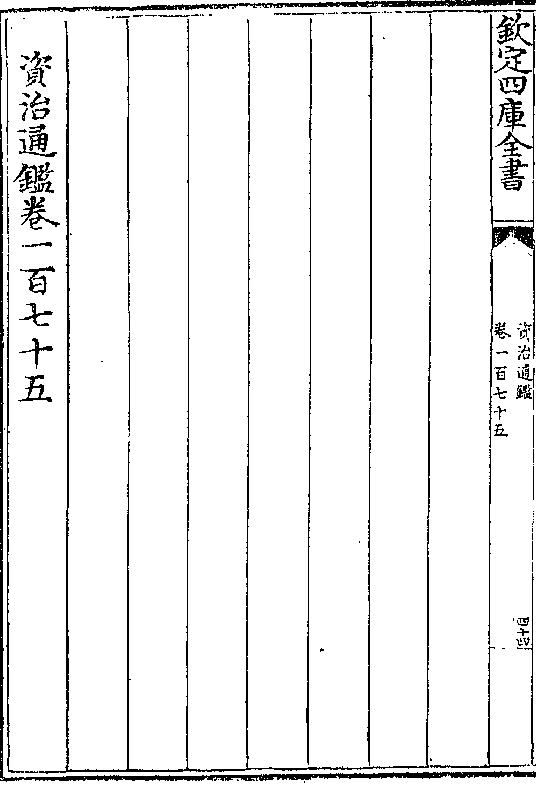 欽定四庫全書
資治通鑑
卷一百七十五
四十四
資治通鑑卷一百七十五